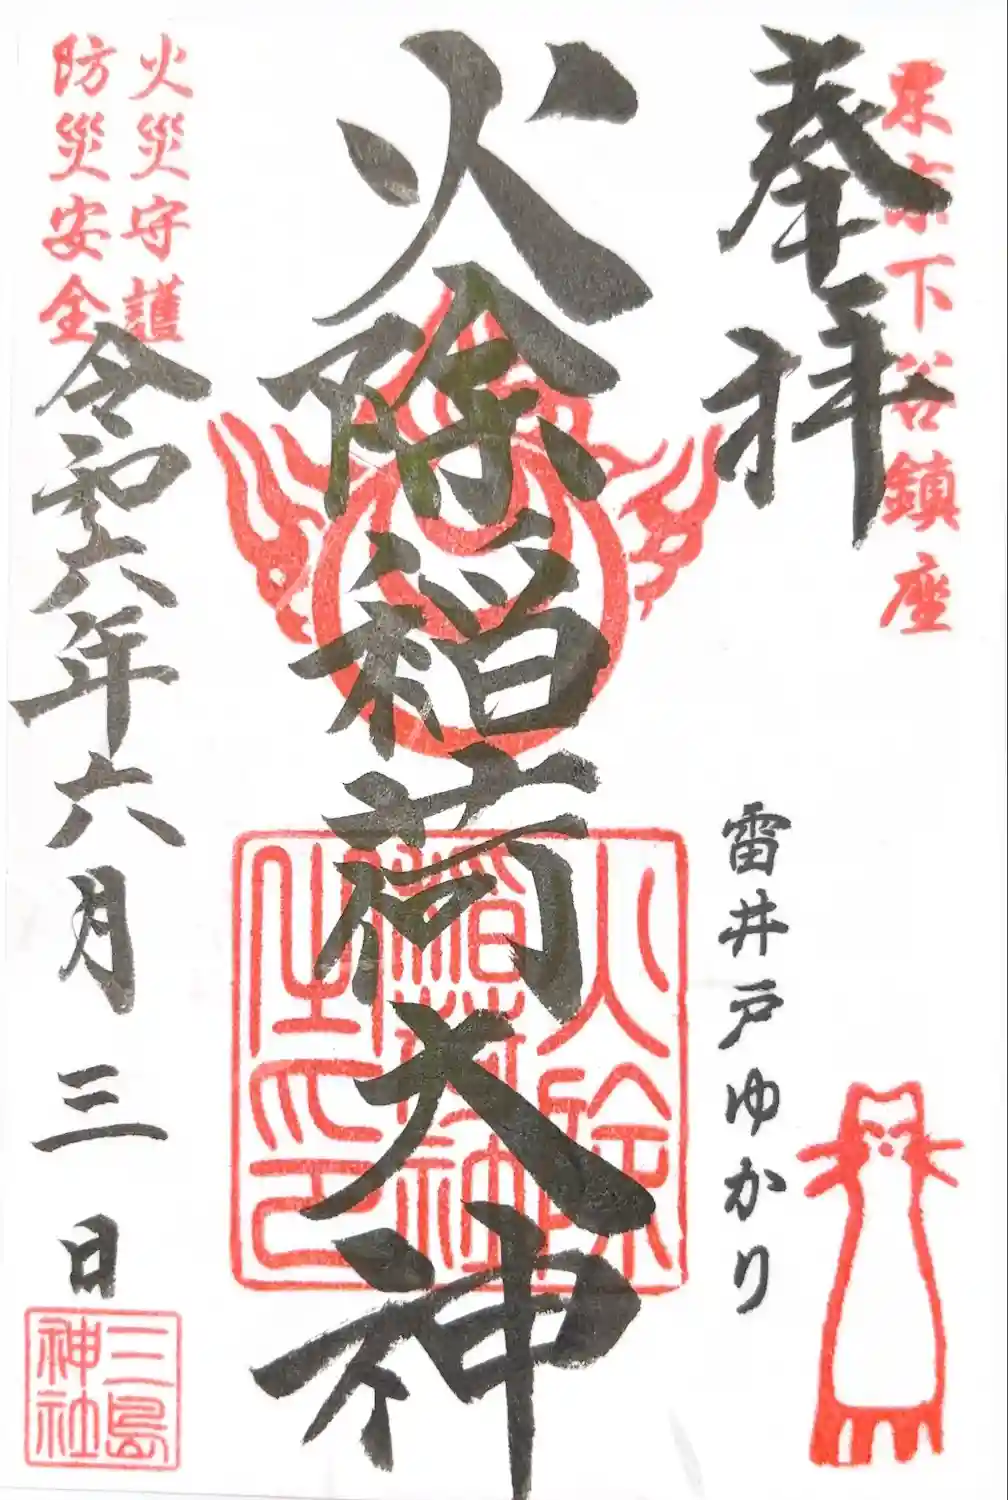 東京下谷鎮座
奉拝
雷井戸ゆかり
火除稲荷大神
火除
稲荷神社
之印
火災守護
防災安全
令和六年六月三日
三島
神社